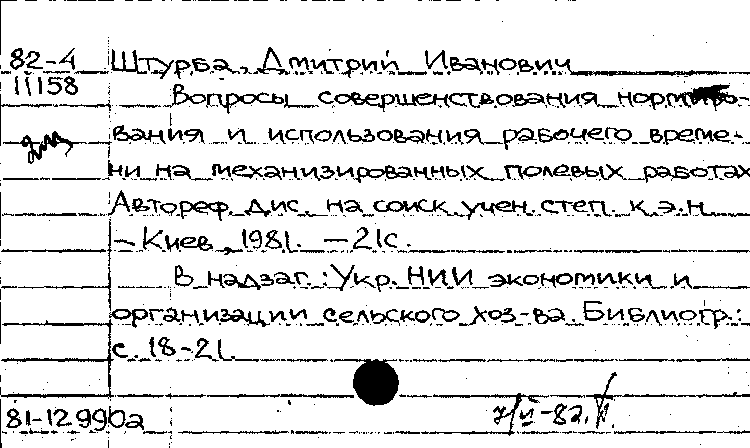 82-4 Штурба, Дмитрий Иванович
11158 Вопросы совершенствования нормиро-
вания и использования рабочего време-
ни на механизированных полевых работах
Автореф. дис. на соиск. учен. степ. к.э.н.
– Киев, 1981. – 21 с.
В надзаг.: Укр. НИИ экономики и
организации сельского хоз-ва. Библиогр.:
с. 18-21.
81-12990а